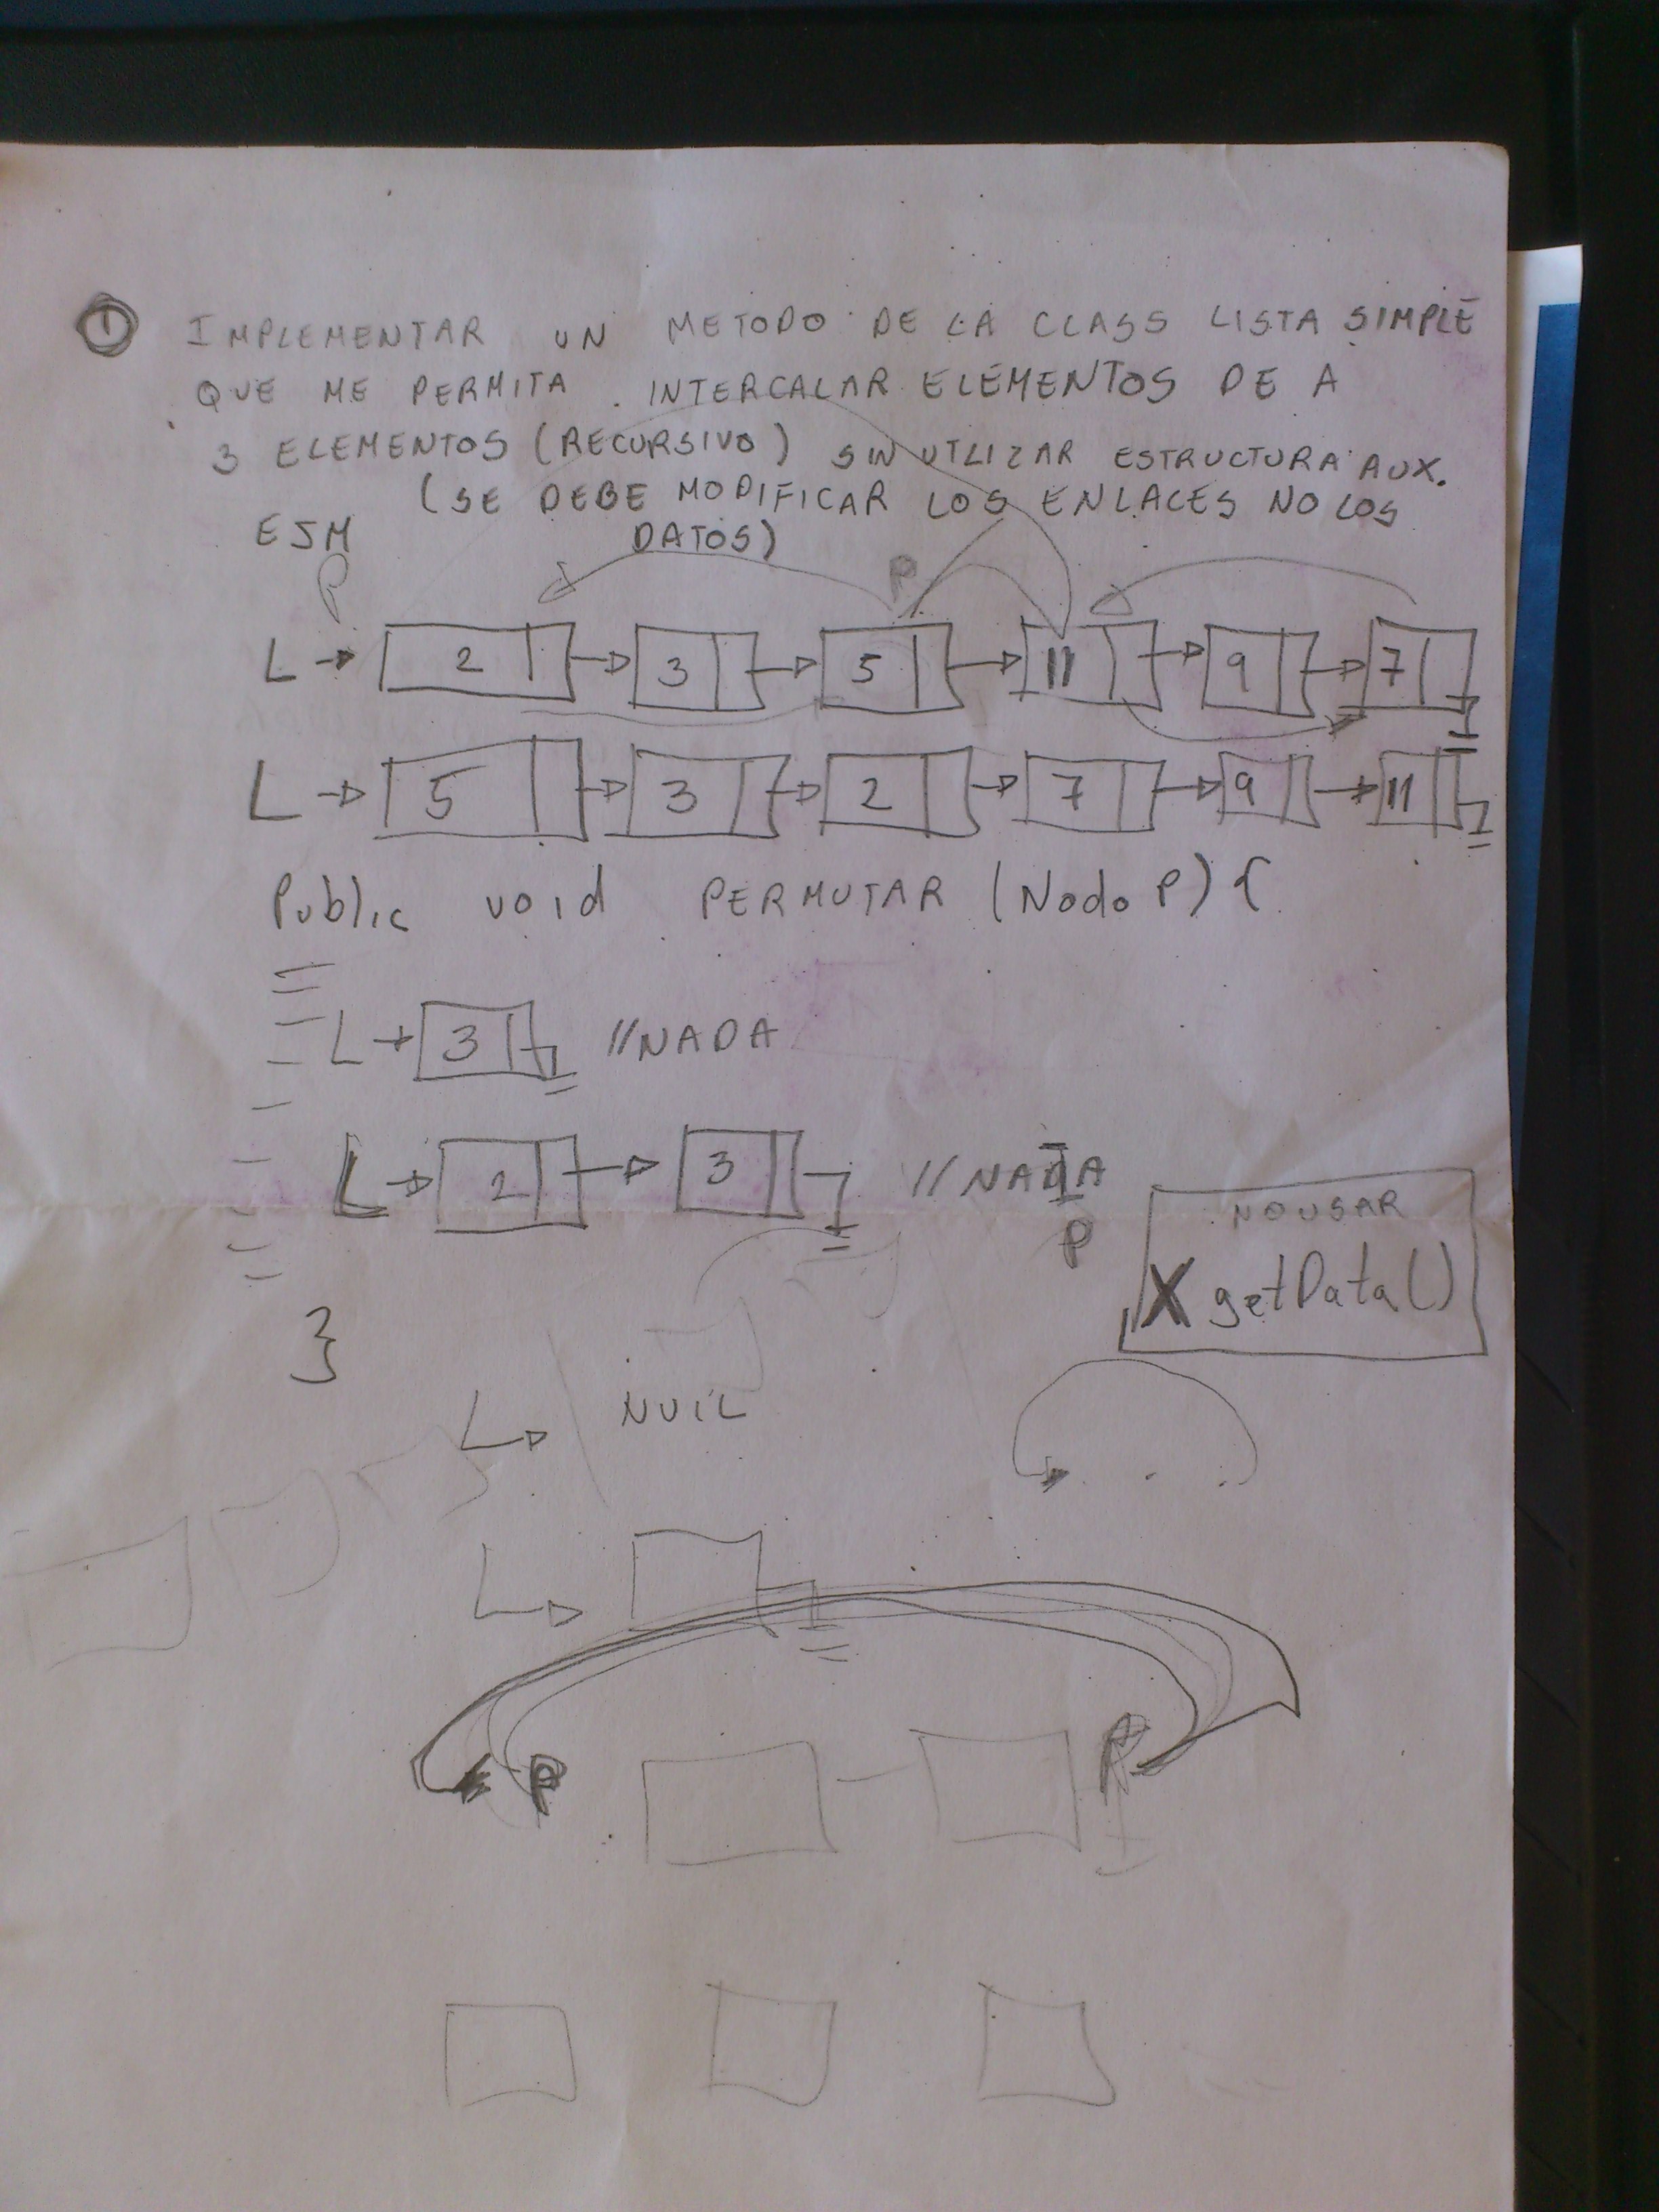 1 IMPLEMENTAR UN METODO DE LA CLASS LISTA SIMPLE
QUE ME PERMITA INTERCALAR ELEMENTOS DE A
3 ELEMENTOS (RECURSIVO) SIN UTLIZAR ESTRUCTURA AUX.
(SE DEBE MODIFICAR LOS ENLACES NO LOS
EJM DATOS)
P P
L 2 3 5 11 9 7
L 5 3 2 7 9 11
Public void PERMUTAR (Nodo P) {
L 3 //NADA
L 2 3 //NADA
P
NO USAR
X getData()
}
L NULL
L
P P